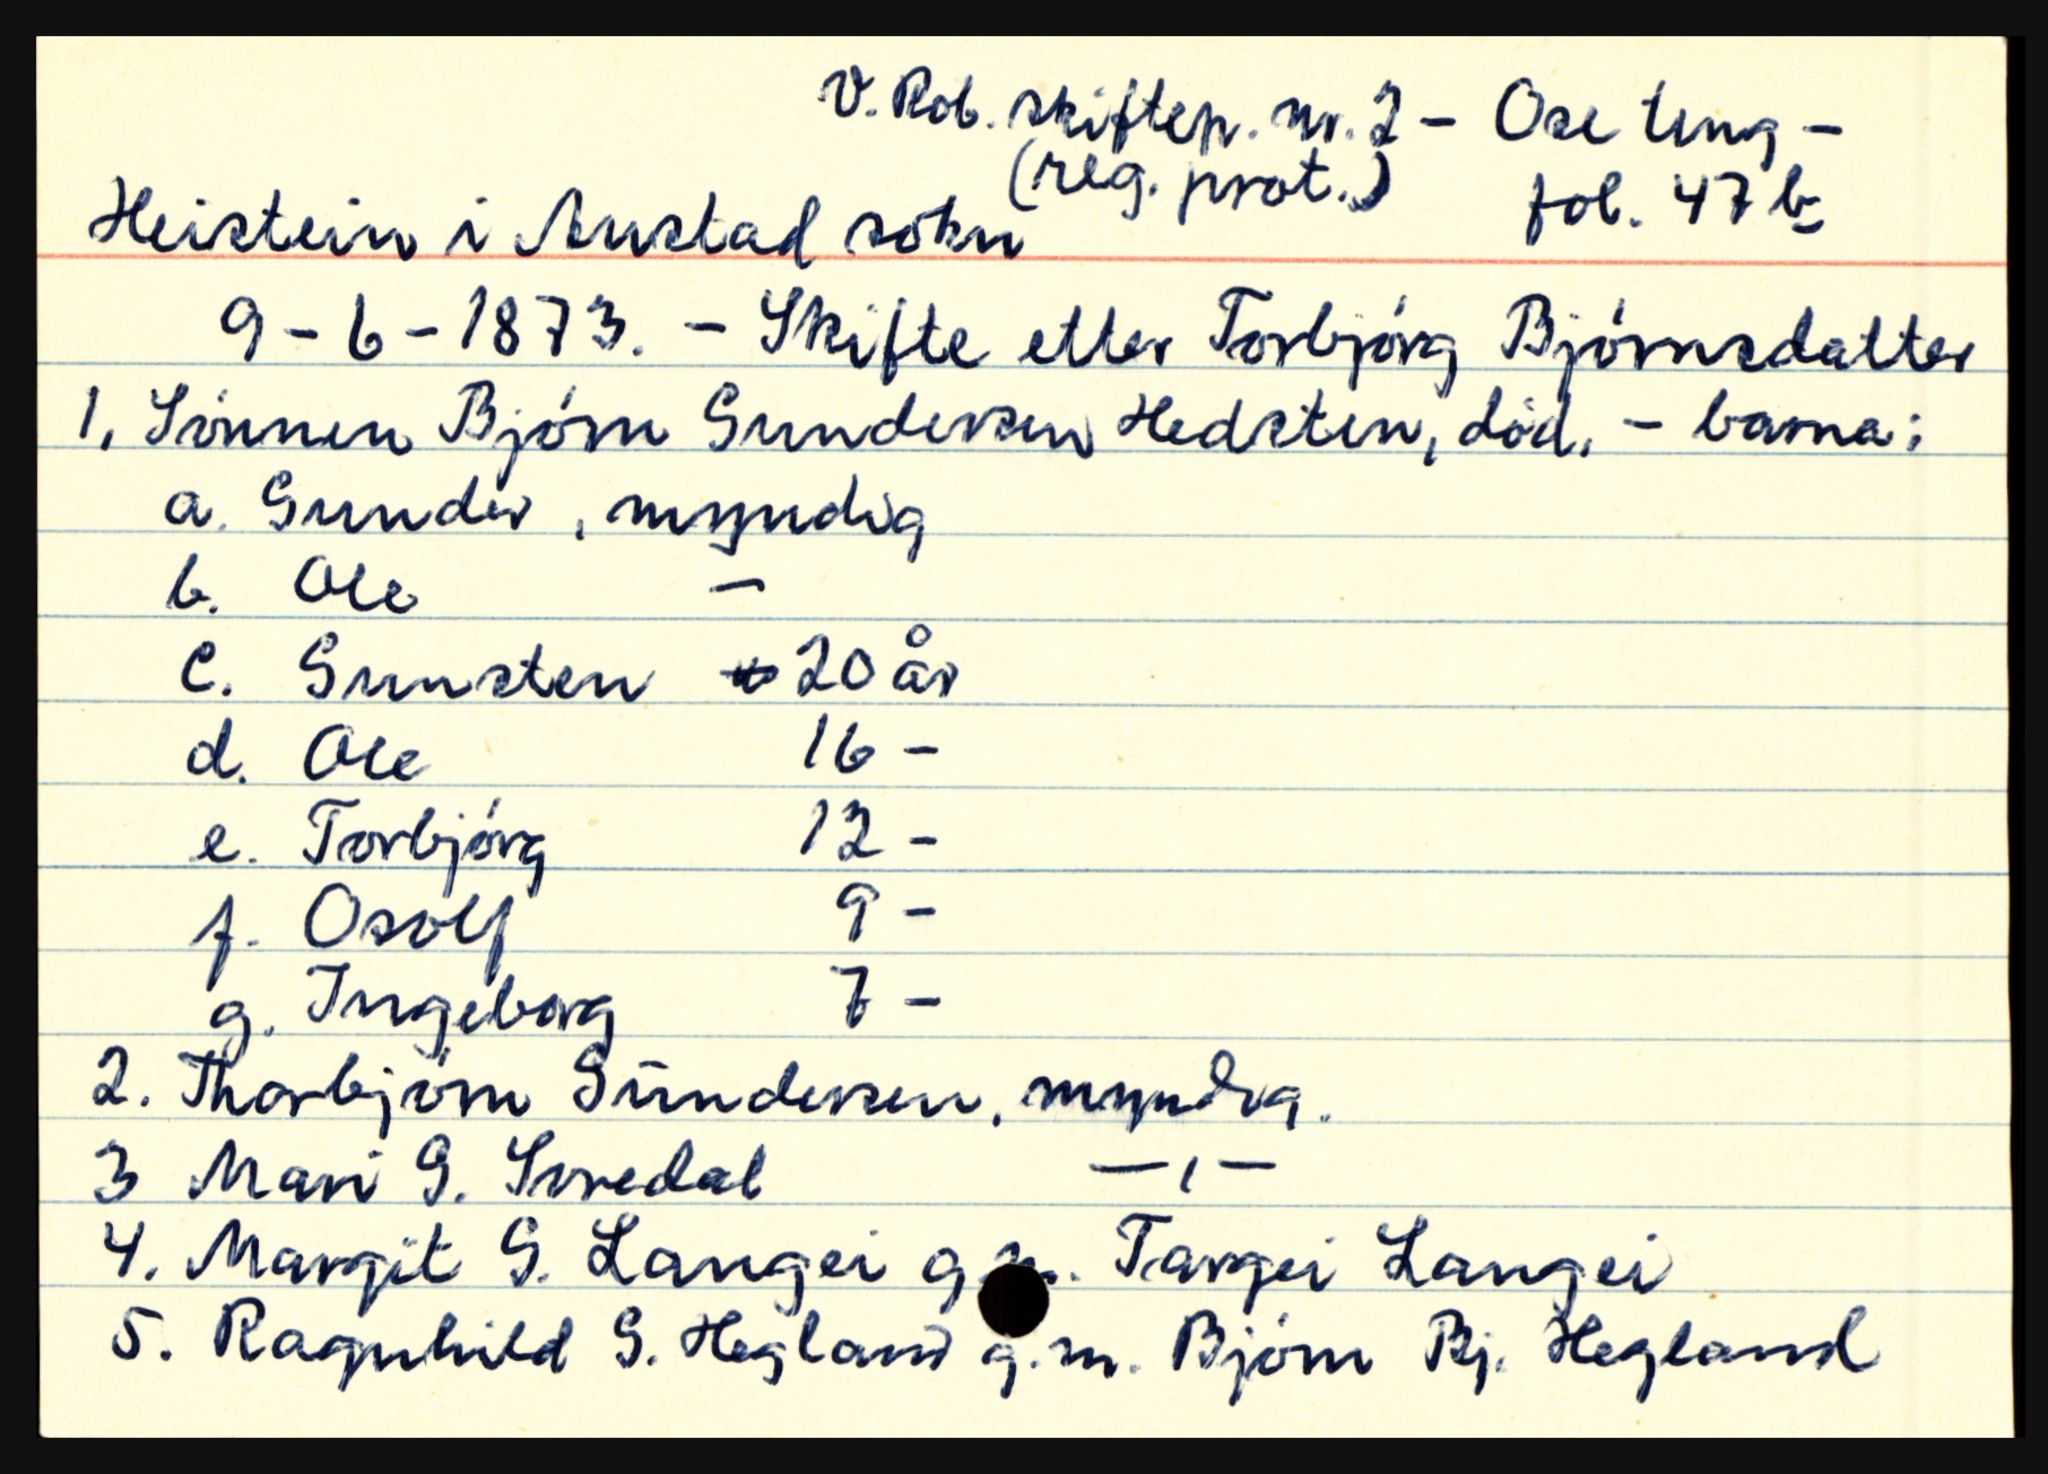 V. Rob. skiftep. nr. 2 - Ose ting -
(reg. prot.) fol. 47 b
Heistein i Austad sokn
9-6-1873. - Skifte etter Torbjørg Bjørnsdatter
1. Sønnen Bjørn Gundersen Hedsten, død. - barna:
a. Gunder, myndig
b. Ole -
c. Gunsten 20 år
d. Ole 16 -
e. Torbjørg 12 -
f. Osolf 9 -
g. Ingeborg 7 -
2. Thorbjørn Gundersen, myndig.
3 Mari G. -,-
4. Margit G. Langei g.m. Targei Langei
5. Ragnhild G. Hegland g.m. Bjørn Bj. Hegland